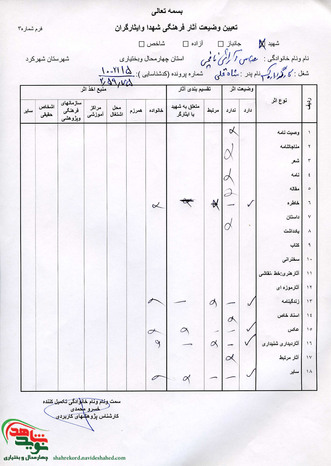 بسمه تعالی
تعیین وضعیت آثار فرهنگی شهدا وایثارگران
فرم شماره۳
شهید جانباز آزاده شاخص
نام ونام خانوادگی: استان چهارمحال وبختیاری شهرستان شهرکرد
نام پدر: شماره پرونده (کدشناسایی):
ردیف نوع اثر وضعیت آثار تقسیم بندی آثار منبع اخذ اثر
دارد ندارد مرتبط متعلق به شهید یا ایثارگر خانواده همرزم محل اشتغال مراکز آموزشی سازمانهای فرهنگی پژوهشی اشخاص حقیقی سایر
۱ وصیت نامه
۲ مناجاتنامه
۳ شعر
۴ نامه
۵ مقاله
۶ خاطره
۷ داستان
۸ یادداشت
۹ کتاب
۱۰ سخنرانی
۱۱ آثارهنری/خط نقاشی
۱۲ آثارموزه ای
۱۳ زندگینامه
۱۴ اسناد خاص
۱۵ عکس
۱۶ آثاردیداری شنیداری
۱۷ آثر مرتبط
۱۸ سایر
سمت ونام ونام خانوادگی تکمیل کننده
خسرو محمدی
کارشناس پژوهشهای کاربردی
نوید شاهد
چهارمحال و بختیاری
shahrekord.navideshahed.com